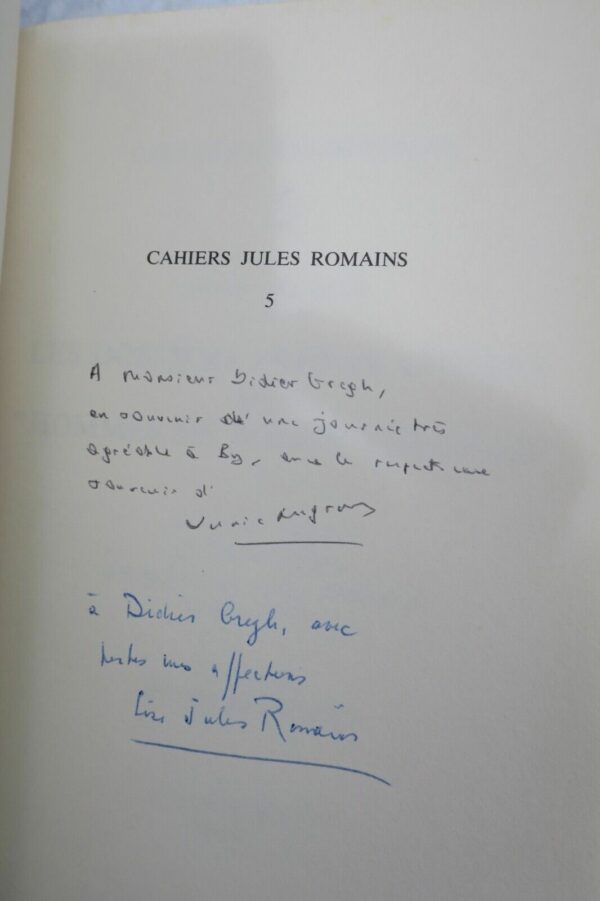 CAHIERS JULES ROMAINS
5
A monsieur Didier Gregh,
en souvenir d'une journée très
agréable à By, avec le respectueux
souvenir d'
à Didier Gregh, avec
toutes mes affections
Lise Jules Romains